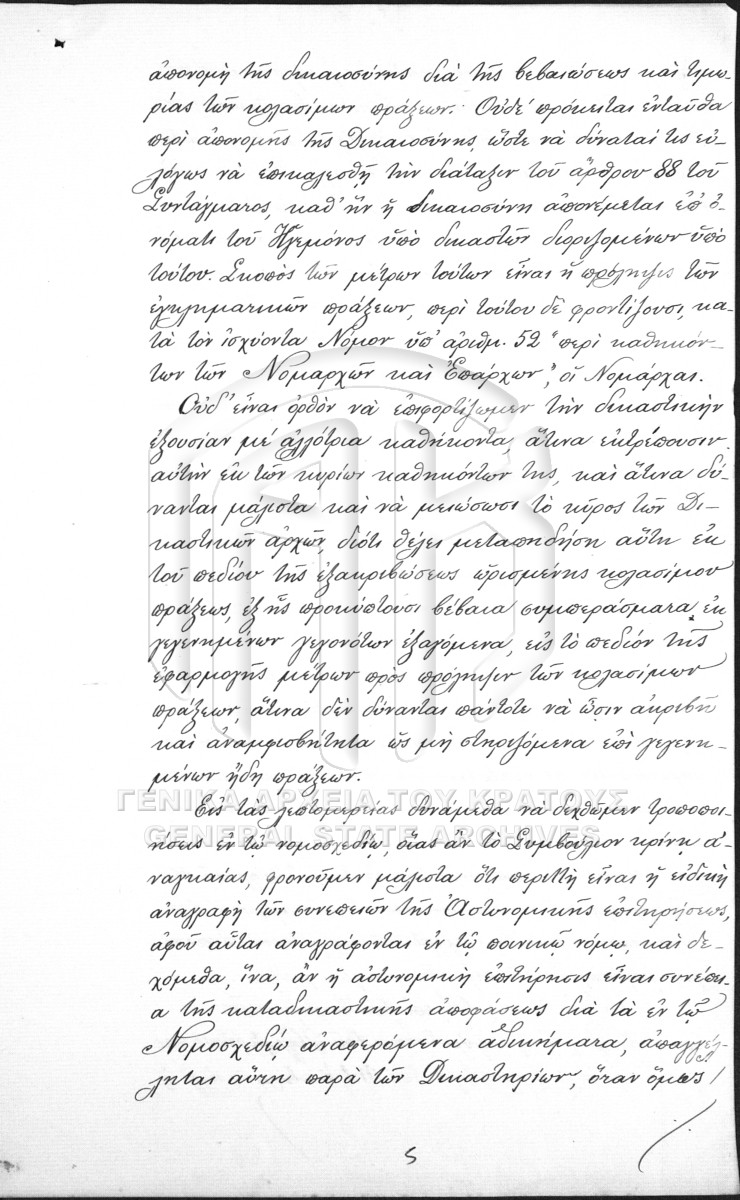 ἀπονομὴ τῆς δικαιοσύνης διὰ τῆς βεβαιώσεως καὶ τιμω-
ρίας τῶν κολασίμων πράξεων. Οὐδὲ πρόκειται ἐνταῦθα
περὶ ἀπονομῆς τῆς Δικαιοσύνης, ὥστε νὰ δύναταί τις εὐ-
λόγως νὰ ἐπικαλεσθῇ τὴν διάταξιν τοῦ ἄρθρου 88 τοῦ
Συντάγματος, καθ' ἣν ἡ δικαιοσύνη ἀπονέμεται ἐπ' ὀ-
νόματι τοῦ Ἡγεμόνος ὑπὸ δικαστῶν διοριζομένων ὑπὸ
τούτου. Σκοπὸς τῶν μέτρων τούτων εἶναι ἡ πρόληψις τῶν
ἐγκληματικῶν πράξεων, περὶ τούτου δὲ φροντίζουσι, κα-
τὰ τὸν ἰσχύοντα Νόμον ὑπ' ἀριθμ. 52 "περὶ καθηκόν-
των τῶν Νομαρχῶν καὶ Ἐπάρχων", οἱ Νομάρχαι.
Οὐδ' εἶναι ὀρθὸν νὰ ἐπιφορτίζωμεν τὴν δικαστικὴν
ἐξουσίαν μὲ ἀλλότρια καθήκοντα, ἅτινα ἐκτρέπουσιν
αὐτὴν ἐκ τῶν κυρίων καθηκόντων της, καὶ ἅτινα δύ-
νανται μάλιστα καὶ νὰ μειώσωσι τὸ κῦρος τῶν Δι-
καστικῶν ἀρχῶν, διότι θέλει μεταπηδήση αὕτη ἐκ
τοῦ πεδίου τῆς ἐξακριβώσεως ὡρισμένης κολασίμου
πράξεως, ἐξ ἧς προκύπτουσι βέβαια συμπεράσματα ἐκ
γεγενημένων γεγονότων ἐξαγόμενα, εἰς τὸ πεδίον τῆς
ἐφαρμογῆς μέτρων πρὸς πρόληψιν τῶν κολασίμων
πράξεων, ἅτινα δὲν δύνανται πάντοτε νὰ ὦσιν ἀκριβῆ
καὶ ἀναμφισβήτητα ὡς μὴ στηριζόμενα ἐπὶ γεγενη-
μένων ἤδη πράξεων.
ΓΕΝΙΚΑ ΑΡΧΕΙΑ ΤΟΥ ΚΡΑΤΟΥΣ
Εἰς τὰς λεπτομερείας δυνάμεθα νὰ δεχθῶμεν τροποποι-
GENERAL STATE ARCHIVES
ήσεις ἐν τῷ νομοσχεδίῳ, οἵας ἂν τὸ Συμβούλιον κρίνῃ ἀ-
ναγκαίας, φρονοῦμεν μάλιστα ὅτι περιττὴ εἶναι ἡ εἰδικὴ
ἀναγραφὴ τῶν συνεπειῶν τῆς Ἀστυνομικῆς ἐπιτηρήσεως,
ἀφοῦ αὗται ἀναγράφονται ἐν τῷ ποινικῷ νόμῳ, καὶ δε-
χόμεθα, ἵνα, ἂν ἡ ἀστυνομικὴ ἐπιτήρησις εἶναι συνέπει-
α τῆς καταδικαστικῆς ἀποφάσεως διὰ τὰ ἐν τῷ
Νομοσχεδίῳ ἀναφερόμενα ἀδικήματα, ἀπαγγέλ-
ληται αὕτη παρὰ τῶν Δικαστηρίων, ὅταν ὅμως /
5